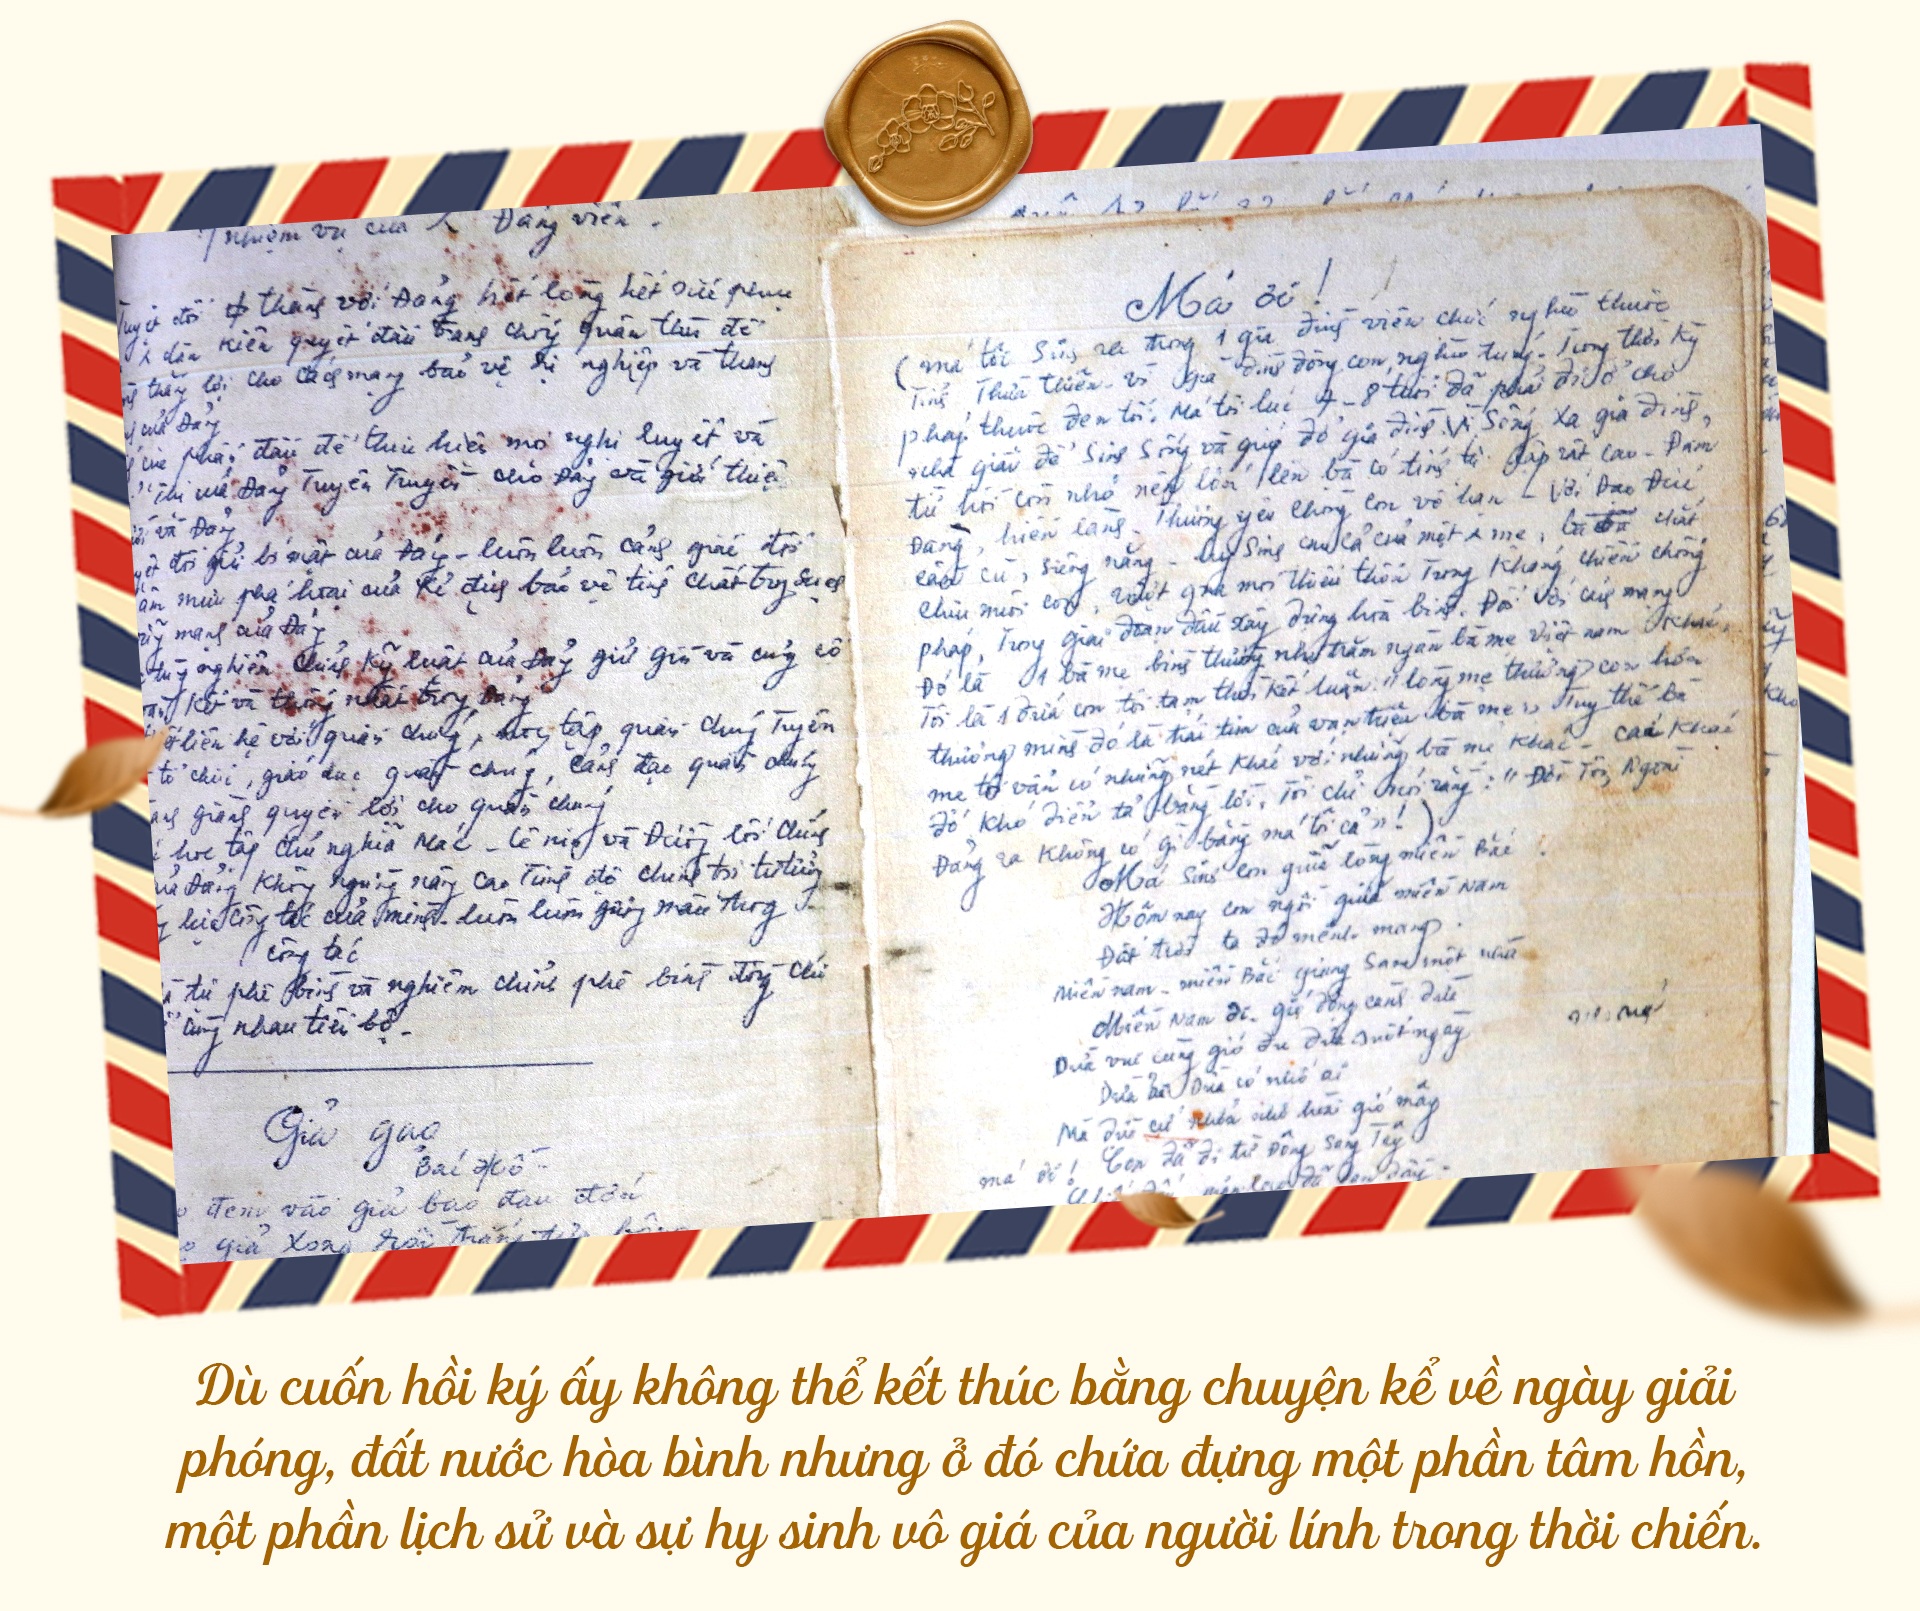 nhiệm vụ của Đảng viên -
Tuyệt đối thành với Đảng hết lòng hết sức phục
dân kiên quyết đấu tranh chống quân thù để
thắng lợi cho cách mạng bảo vệ sự nghiệp và thành
của Đảng
phấn đấu để thực hiện mọi nghị quyết và
thị của Đảng Tuyên Truyền cho Đảng và giới thiệu
với Đảng
đối giữ bí mật của Đảng - luôn luôn cảnh giác đối
âm mưu phá hoại của kẻ địch bảo vệ tính chất trong sạch
mạng của Đảng
nghiêm chỉnh kỷ luật của Đảng giữ gìn và củng cố
kết và thống nhất trong Đảng
liên hệ với quần chúng, học tập quần chúng Tuyên
tổ chức, giáo dục quần chúng, lãnh đạo quần chúng
giành quyền lợi cho quần chúng
học tập chủ nghĩa Mác - Lê nin và Đường lối chính
của Đảng không ngừng nâng cao Trình độ chính trị tư tưởng
công tác của mình - luôn luôn gương mẫu trong
công tác
tự phê bình và nghiêm chỉnh phê bình đồng chí
cùng nhau tiến bộ -
Giả gạo
Bác Hồ -
đem vào giả bao đau đớn
giả xong rồi trắng tựa bông
Má ơi!
(má tôi Sinh ra trong 1 gia đình viên chức nghèo thuộc
Tỉnh Thừa thiên - vì gia đình đông con, nghèo túng - Trong thời kỳ
pháp thuộc đen tối. Má tôi lúc 7 - 8 tuổi đã phải đi ở cho
nhà giàu để Sinh Sống và giúp đỡ gia đình. Vì Sống xa gia đình,
từ hồi còn nhỏ nên lớn lên bà có tính tự lập rất cao - Đảm
Đang, hiền lành - Thương yêu chồng con vô hạn - Với Đạo Đức
cần cù, siêng năng - hy Sinh cao cả của một mẹ, bà chắt
chiu nuôi con, vượt qua mọi thiếu thốn Trong kháng chiến chống
pháp, Trong giai đoạn đầu xây dựng hòa bình. Đối với cách mạng
Đó là 1 bà mẹ bình thường như trăm ngàn bà mẹ Việt nam khác,
Tôi là 1 đứa con tôi tạm thời kết luận: "lòng mẹ thương con hơn
thương mình đó là trái tim của vạn triệu bà mẹ" Tuy thế bà
mẹ tôi vẫn có những nét khác với những bà mẹ khác - cái khác
đó khó diễn tả bằng lời, Tôi chỉ nói rằng: "Đời Tôi Ngoài
Đảng ra không có gì bằng má tôi cả"!)
Má Sinh con giữa lòng miền Bắc
Hôm nay con ngồi giữa miền Nam
Đất trời ta đó mênh mang
Miền nam - miền Bắc giang Sam một nhà
Miền Nam đó gió đông cành dừa
Dừa vui cùng gió đu đưa suốt ngày
Dừa ơi Dừa có nhớ ai
Mà dừa cứ nhỏ hoài gió mây
má ơi! Con đã đi từ Đông sang Tây
Dù cuốn hồi ký ấy không thể kết thúc bằng chuyện kể về ngày giải
phóng, đất nước hòa bình nhưng ở đó chứa đựng một phần tâm hồn,
một phần lịch sử và sự hy sinh vô giá của người lính trong thời chiến.